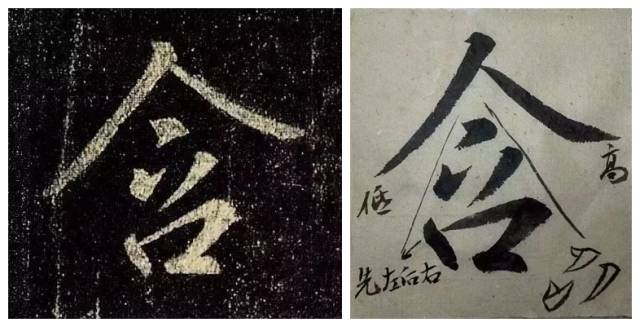 含
含
高
低
先左后右